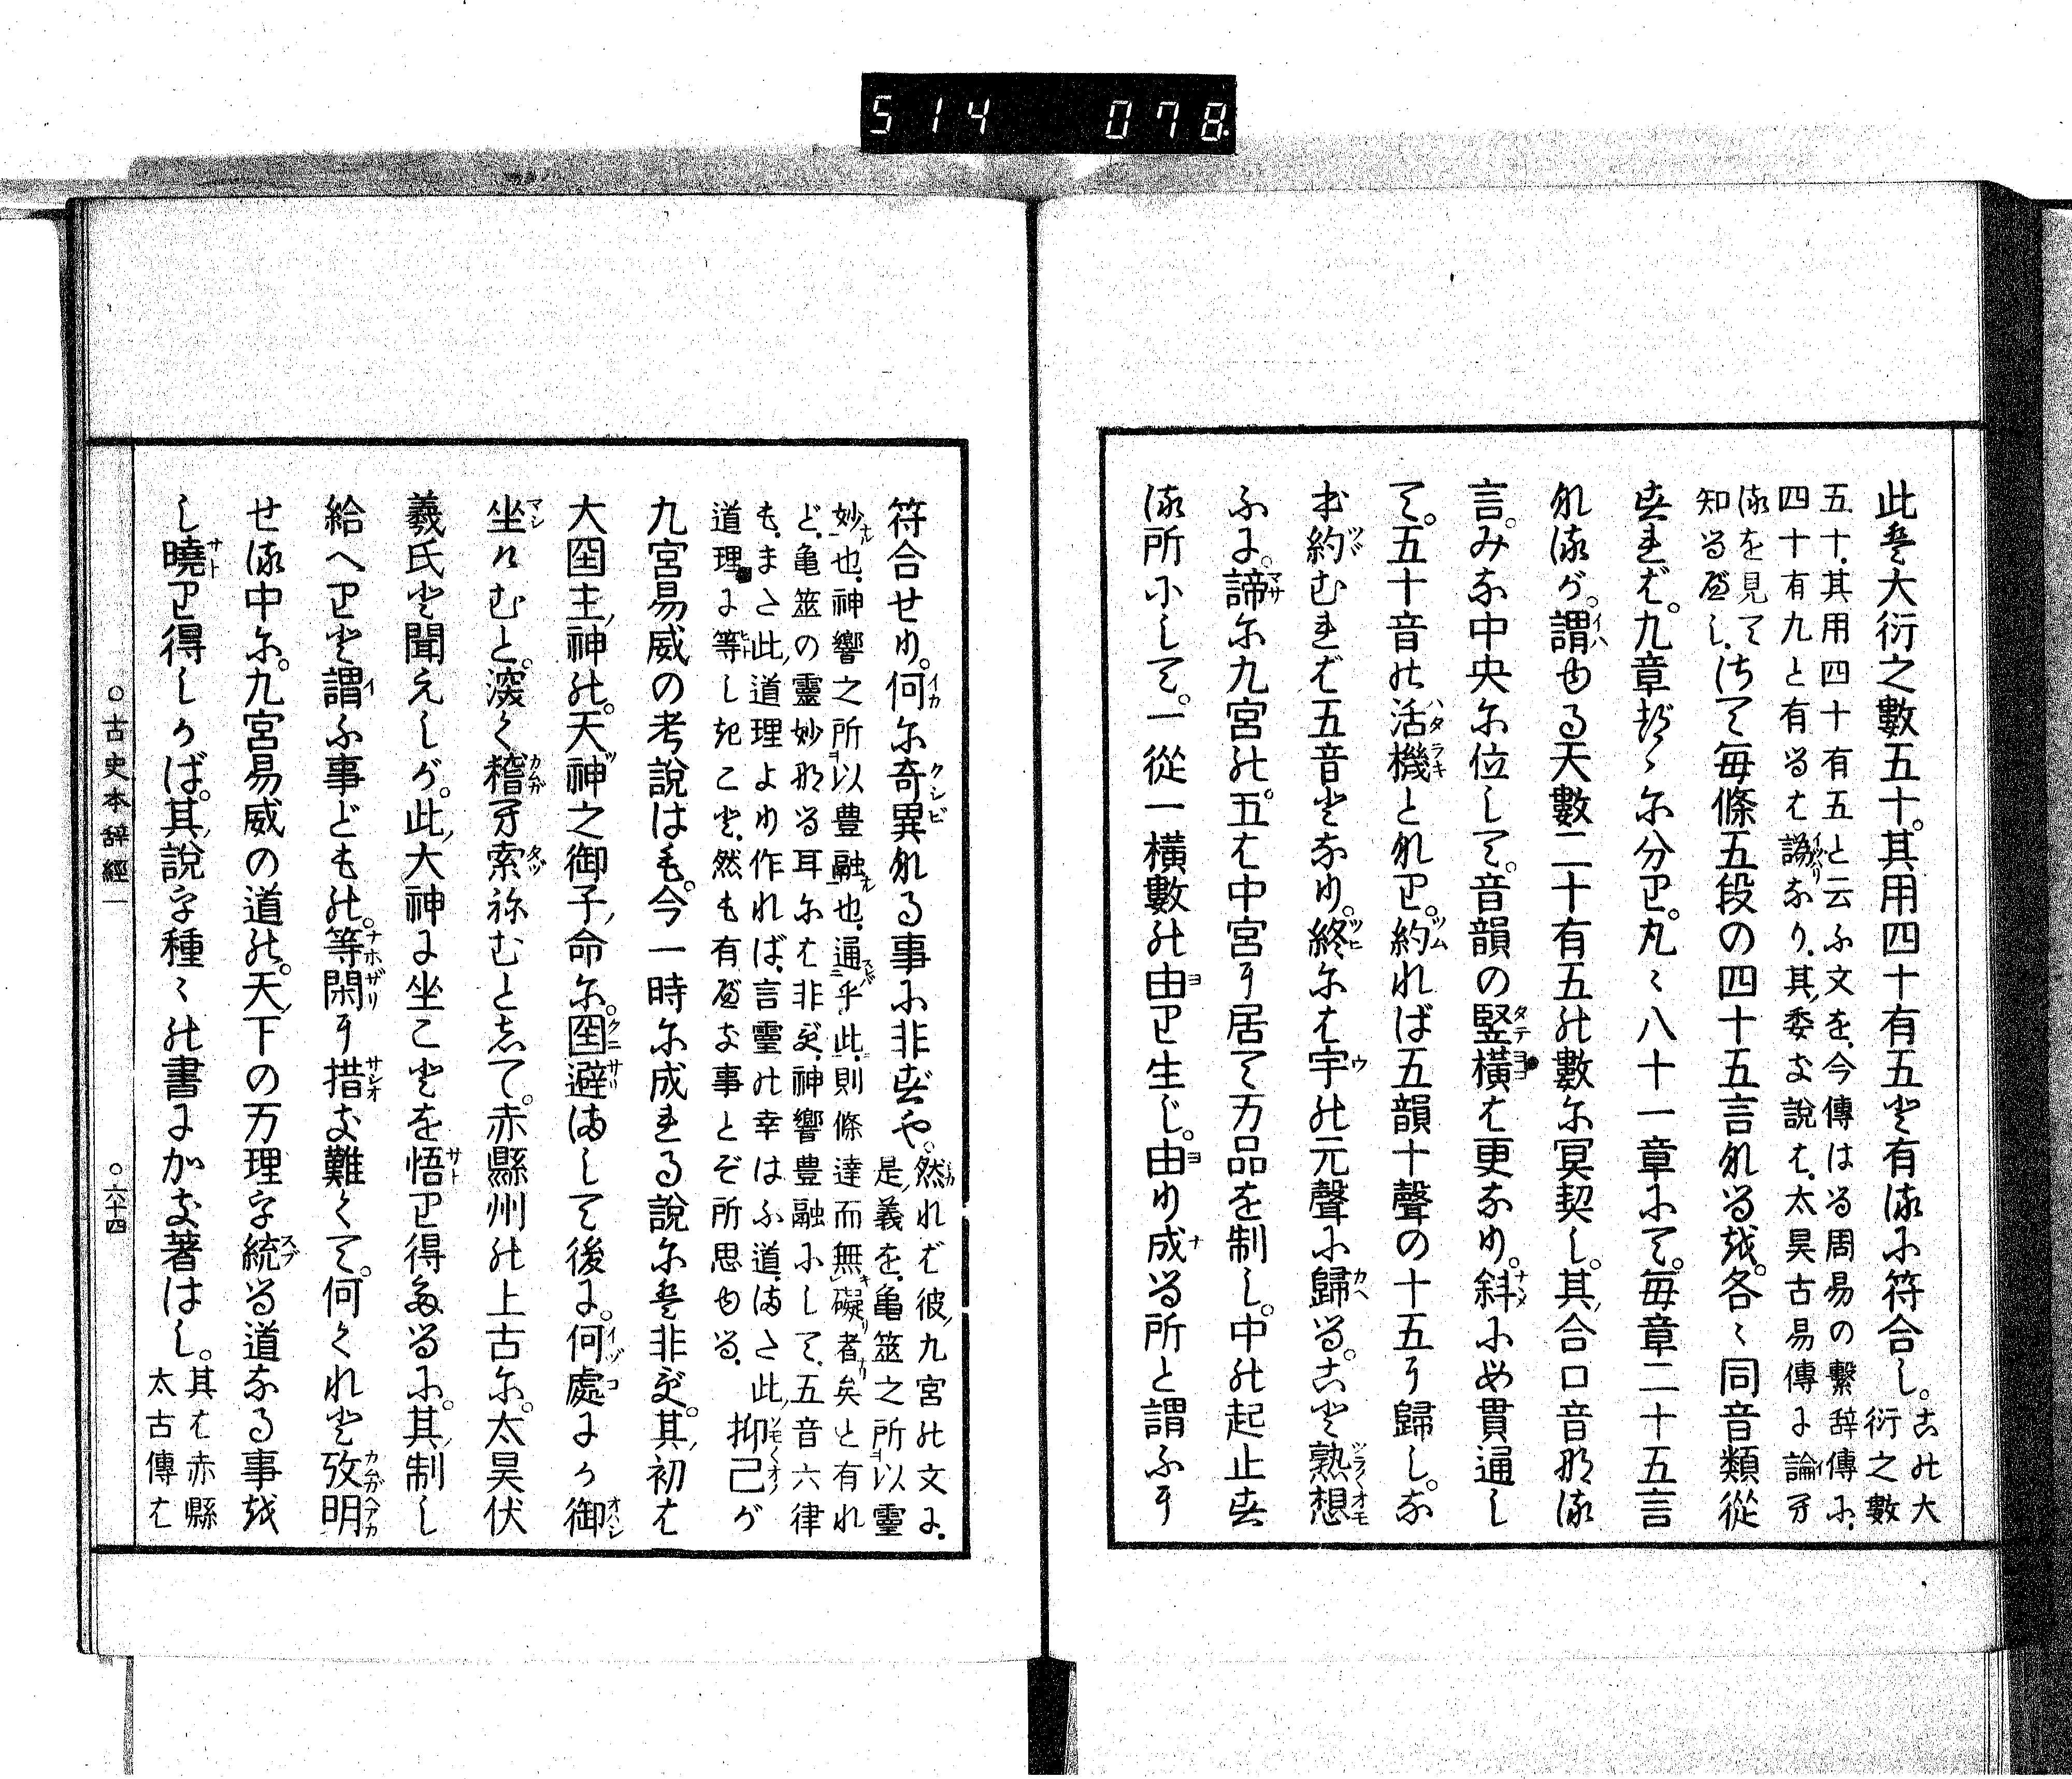 514 078
此は大衍之數五十。其用四十有五と有るに符合し。古の大
衍之數
五十、其用四十有五と云ふ文を、今傳はる周易の繫辞傳に、
四十有九と有るは譌なり、其委き說は、太昊古易傳に論ひ
るを見て
知るべし、
さて毎條五段の四十五言なるを。各〻同音類從
すれば。九章都〻に分り。凡〻八十一章にて。毎章二十五言
なるが。謂ゆる天數二十有五の數に冥契し。其合口音なる
言。みな中央に位して。音韻の竪橫は更なり。斜にめ貫通し
て。五十音の活機となり。約れば五韻十聲の十五に歸し。な
ほ約むれば五音となり。終には宇の元聲に歸る。古と熟想
ふに。諦に九宮の。五は中宮に居て万品を制し。中の起止す
る所にして。一從一橫數の由り生じ。由り成る所と謂ふに
符合せり。何に奇異なる事に非ずや。然れば彼九宮の文に、
是義を、亀筮之所以靈
妙也、神響之所以豊融也、通乎此、則條達而無礙者矣と有れ
ど、亀筮の靈妙なる耳には非ず、神響豊融にして、五音六律
も、また此道理より作れば、言靈の幸はふ道、また此
道理に等しきこと、然も有べき事とぞ所思ゆる、
抑己が
九宮易威の考說はも。今一時に成れる說には非ず。其初は
大国主神の。天神之御子命に。国避まして後に。何處にか御
坐けむと。深く稽へ索ねむとして。赤縣州の上古に。太昊伏
羲氏と聞えしが。此大神に坐ことを悟り得たるに。其制し
給へりと謂ふ事どもの。等閑に措き難くて。何くれと攷明
せる中に。九宮易威の道の。天下の万理を統る道なる事を
し曉り得しかば。其說を種〻の書にかき著はし。其は赤縣
太古傳は
○古史本辞經一 ○六十四